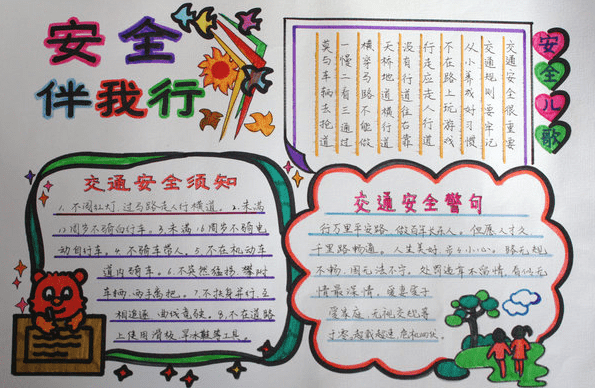 安全
伴我行
安全儿歌
交通安全很重要
交通规则要牢记
从小养成好习惯
不在路上玩游戏
行走应走人行道
没有行道往右靠
天桥地道横行道
横穿马路不能做
一慢二看三通过
莫与车辆去抢道
交通安全须知
1.不闯红灯,过马路走人行横道。2.未满
12周岁不骑自行车。3.未满16周岁不骑电
动自行车。4.不骑车带人。5.不在机动车
道内骑车。6.不突然猛拐,攀附
车辆,两手离把。7.不扶身并行,互
相追逐,曲线竞驶。8.不在道路
上使用滑板,旱冰鞋等工具。
交通安全警句
行万里平安路,做百年长在人。但愿人才久
千里路畅通。人生美好,步步小心。路无规
不畅,国无法不宁。处罚违章不留情,看似无
情最深情。爱妻爱子
爱家庭,无视交规等
于零,超载超速,危机四伏。